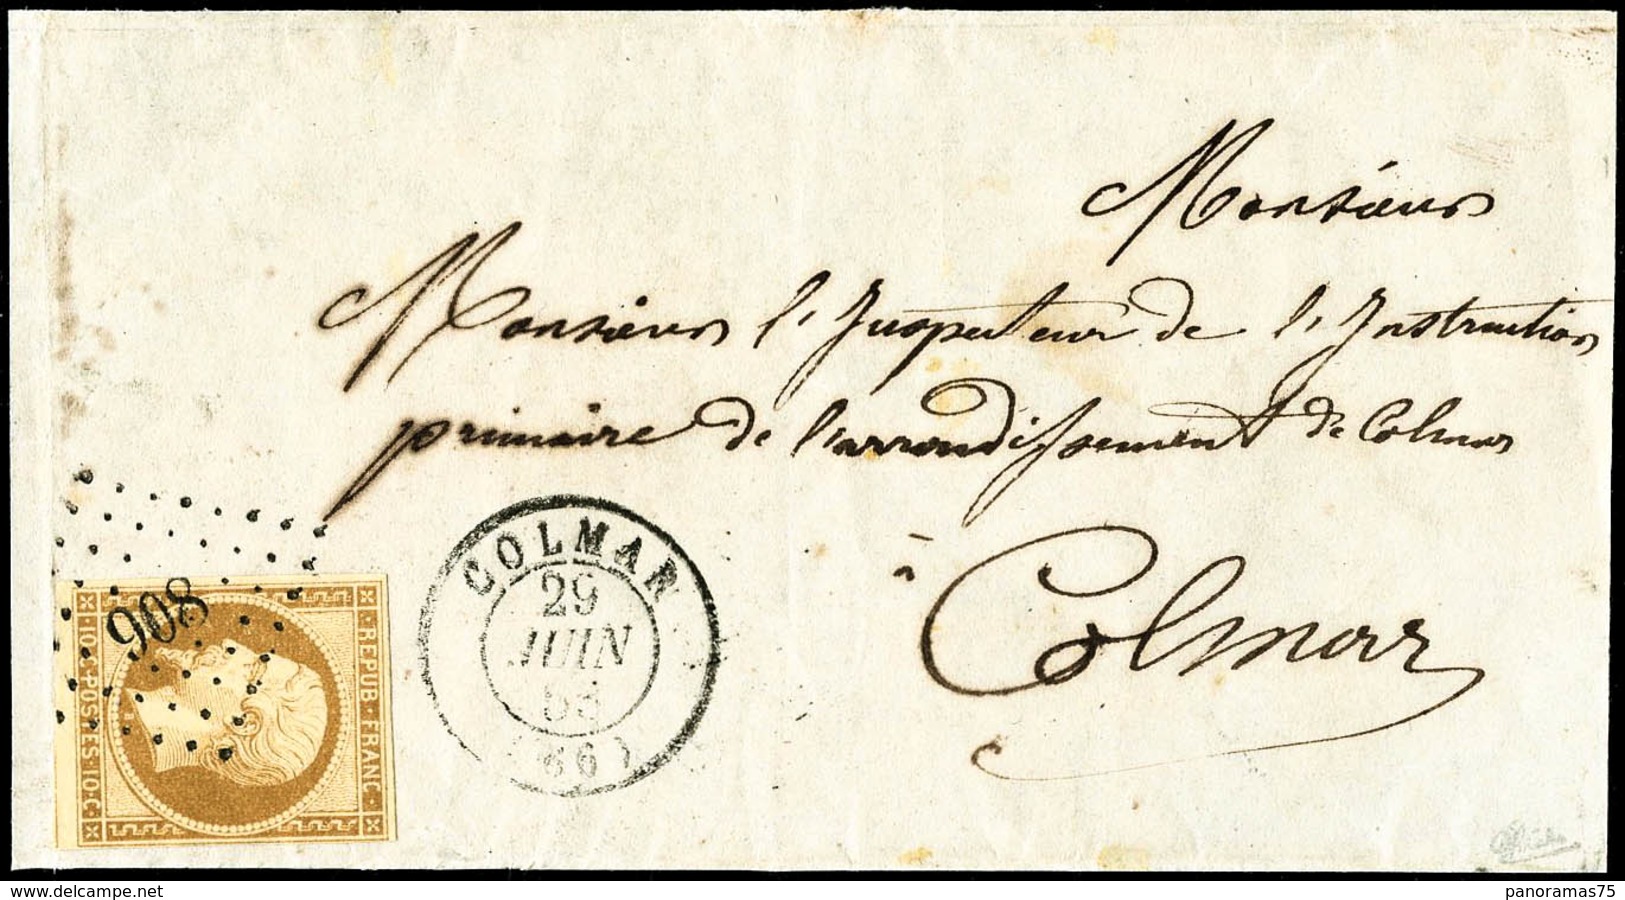 Monsieur
Monsieur l'Inspecteur de l'Instruction
primaire de l'arrondissement de Colmar
à
Colmar
COLMAR
29
JUIN
53
(66)
908
REPUB·FRANC·
10·C·POSTES·10·C·
delcampe.net
panoramas75